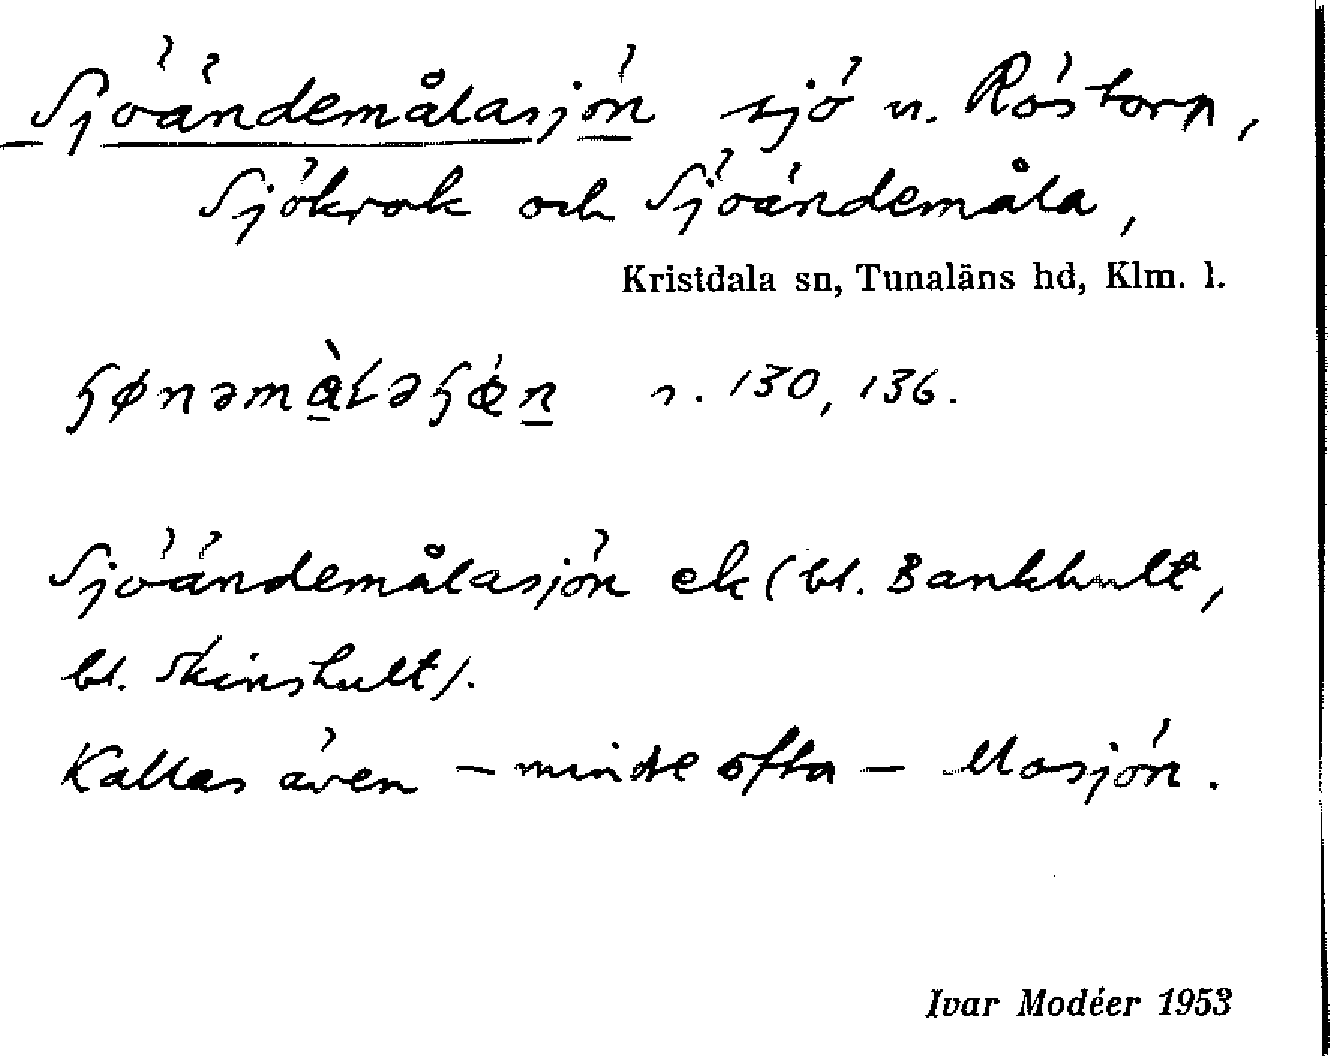 Sjöändemålasjön sjö u. Röstorp,
Sjökrok och Sjöändemåla,
Kristdala sn, Tunaläns hd, Klm. l.
ɧønəmàlaɧǿn n. 130, 136.
Sjöändemålasjön ek (bl. Bankhult,
bl. Skinshult).
Kallas även – mindre ofta – Mosjön.
Ivar Modéer 1953